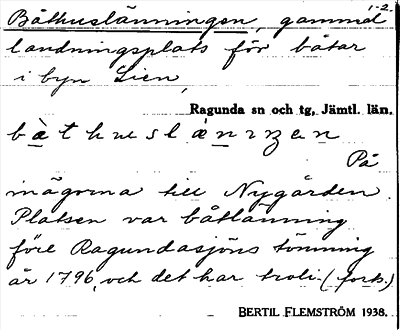 1-2.
Båthuslänningen, gammal
landningsplats för båtar
i byn Lien,
Ragunda sn och tg, Jämtl. län.
På
inägorna till Nygården.
Platsen var båtlänning
före Ragundasjöns tömning
år 1796, och det har trol. (forts.)
BERTIL FLEMSTRÖM 1938.